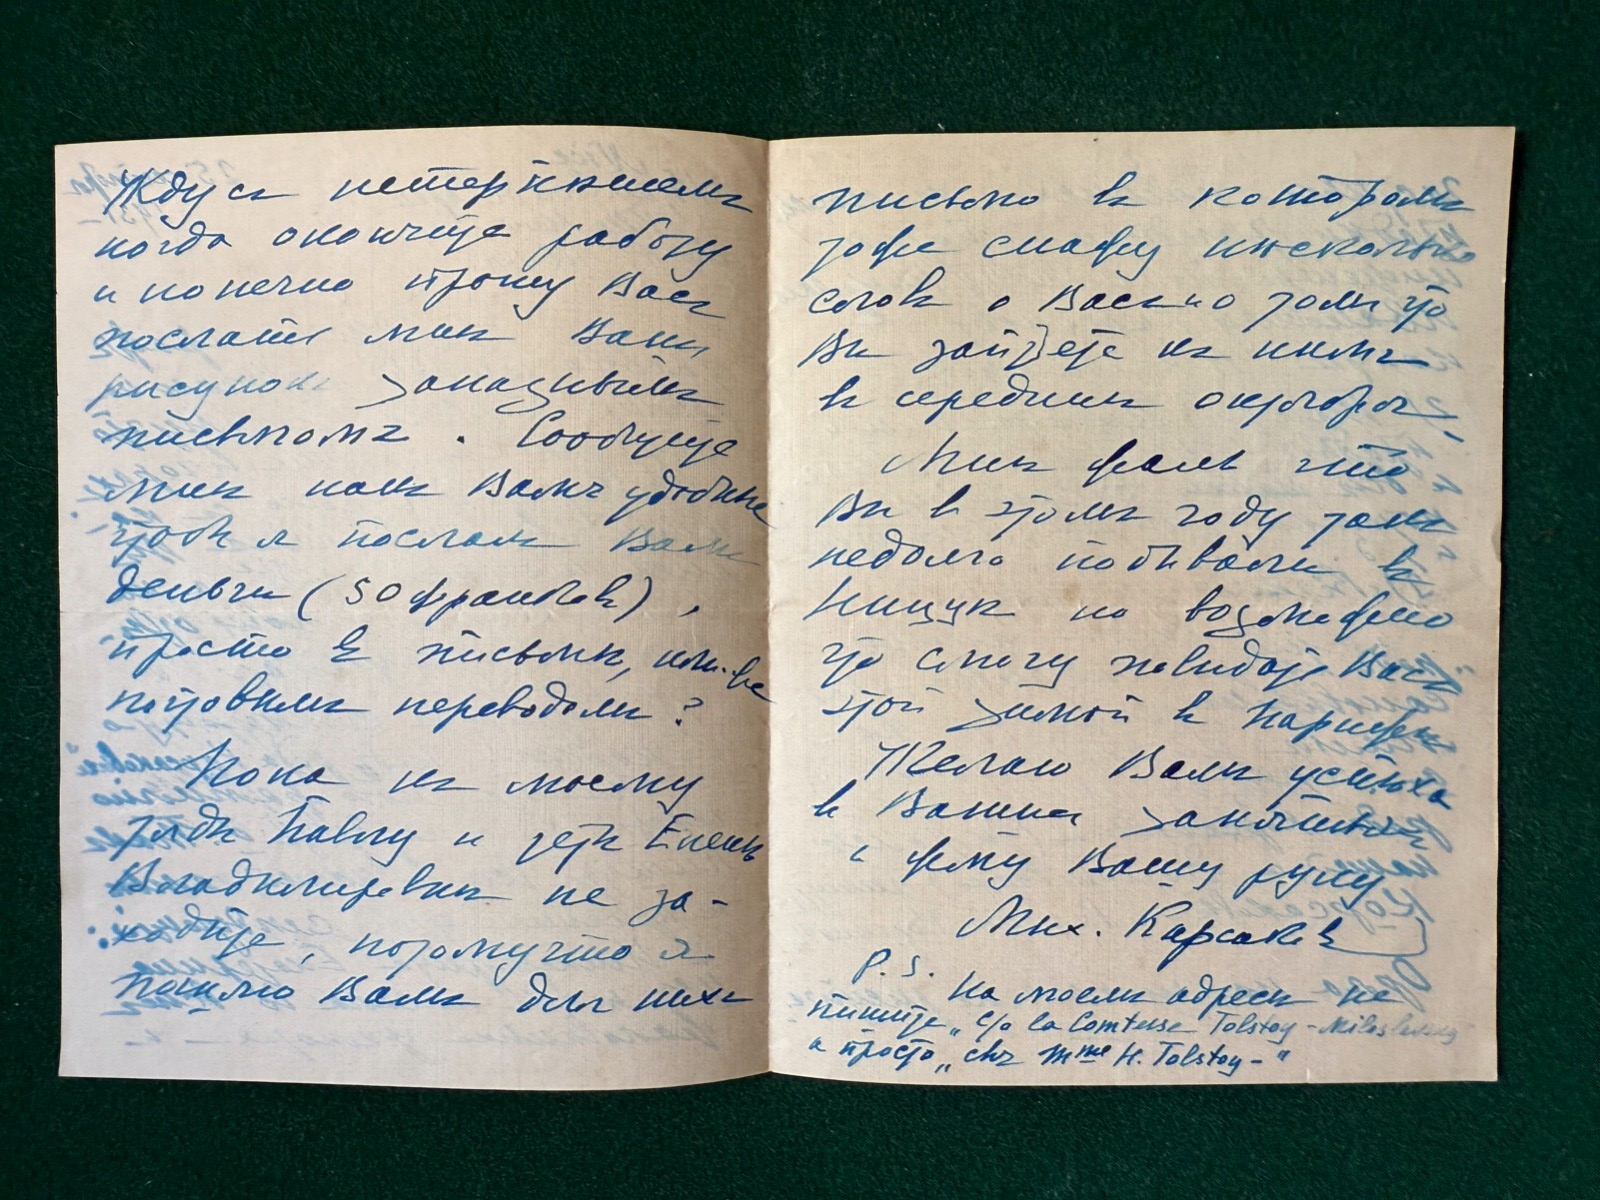 Жду съ нетерпѣніемъ
когда окончите работу
и конечно прошу Васъ
послать мнѣ Ваши
рисунокъ заказнымъ
письмомъ. Сообщите
мнѣ какъ Вамъ удобнѣе
чтобъ я послалъ Вамъ
деньги (50 франковъ),
просто въ письмѣ, или-же
почтовымъ переводомъ?
Пока къ моему
дядѣ Павлу и тетѣ Еленѣ
Владимировнѣ не за-
ходите, потомучто я
пошлю Вамъ для нихъ
письмо въ которомъ
тоже скажу нѣсколько
словъ о Васъ и о томъ что
Вы зайдете къ нимъ
въ серединѣ октября,
Мнѣ жаль что
Вы въ этомъ году такъ
недолго побывали въ
Ниццѣ но возможно
что смогу повидать Васъ
этой зимой въ Парижѣ
Желаю Вамъ успѣха
въ Вашихъ занятіяхъ
и жму Вашу руку
Мих. Карсаковъ
P.S. На моемъ адресѣ не
пишите „c/o la Comtesse Tolstoy-Miloslavsky
а просто „chz Mme H. Tolstoy-"